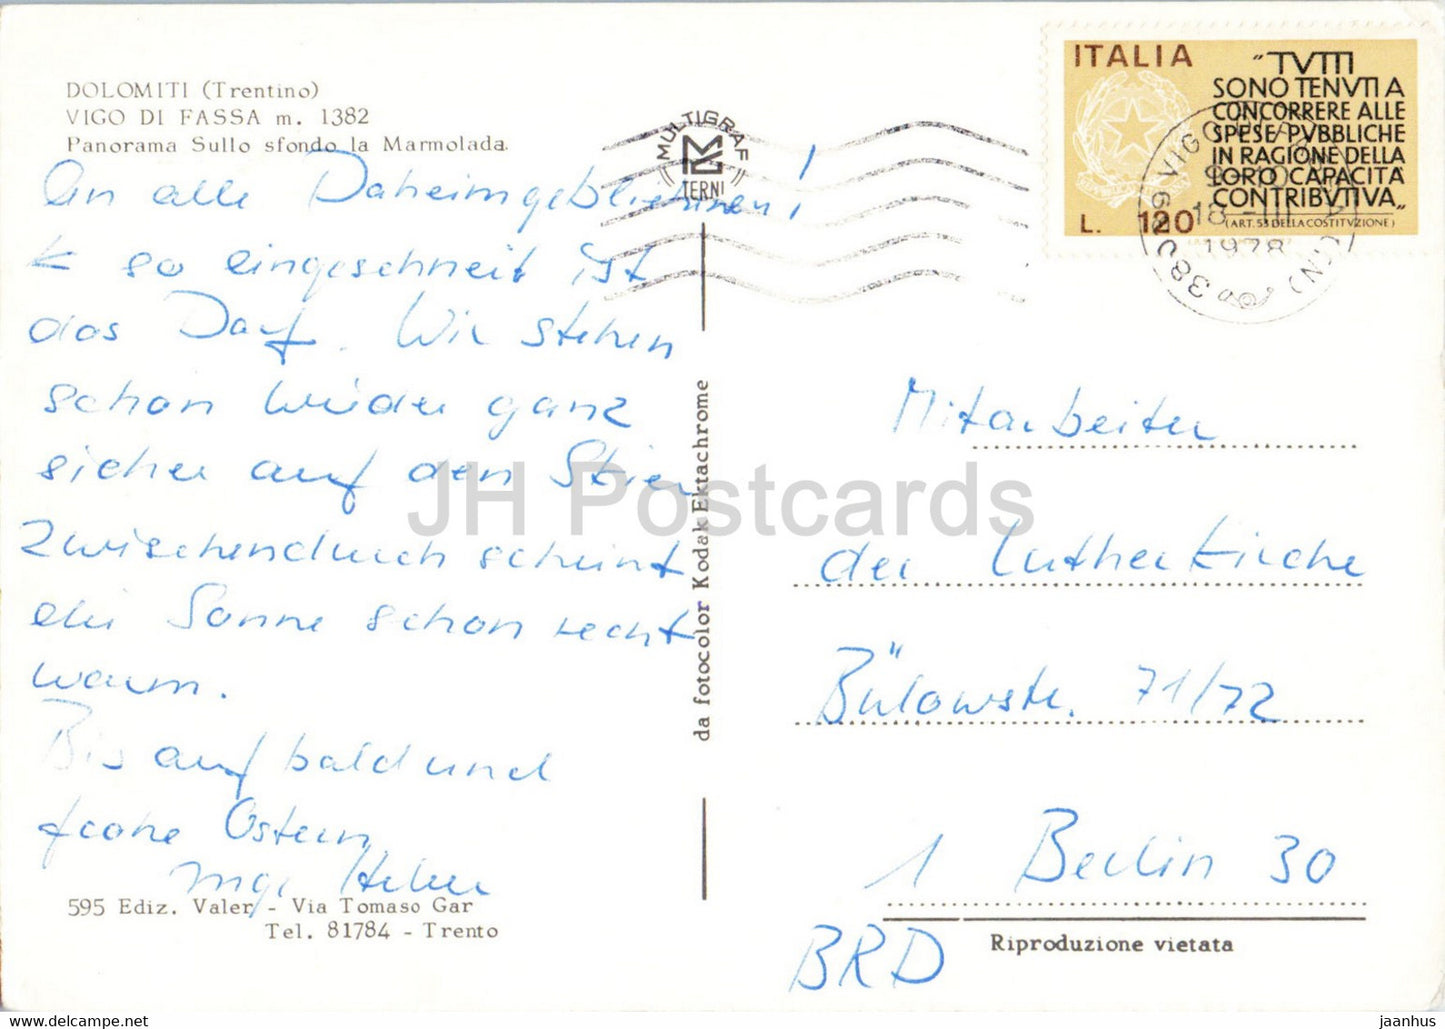 DOLOMITI (Trentino)
VIGO DI FASSA m. 1382
Panorama Sullo sfondo la Marmolada
An alle Daheimgebliebenen!
so eingeschneit ist
das Dorf. Wir stehen
schon wieder ganz
sicher auf den Skiern
Zwischendurch scheint
die Sonne schon recht
warm.
Bis auf bald und
frohe Ostern
Inge
595 Ediz. Valer - Via Tomaso Gar
Tel. 81784 - Trento
MULTIGRAF
TERNI
da fotocolor Kodak Ektachrome
ITALIA
"TVTTI
SONO TENVTI A
CONCORRERE ALLE
SPESE PVBBLICHE
IN RAGIONE DELLA
LORO CAPACITA
CONTRIBVTIVA"
(ART. 53 DELLA COSTITVZIONE)
L. 120
18 -III
1978
Mitarbeiter
der Lutherkirche
Bülowstr. 71/72
1 Berlin 30
BRD
Riproduzione vietata
JH Postcards
jaanhus.myshopify.com
jaanhus